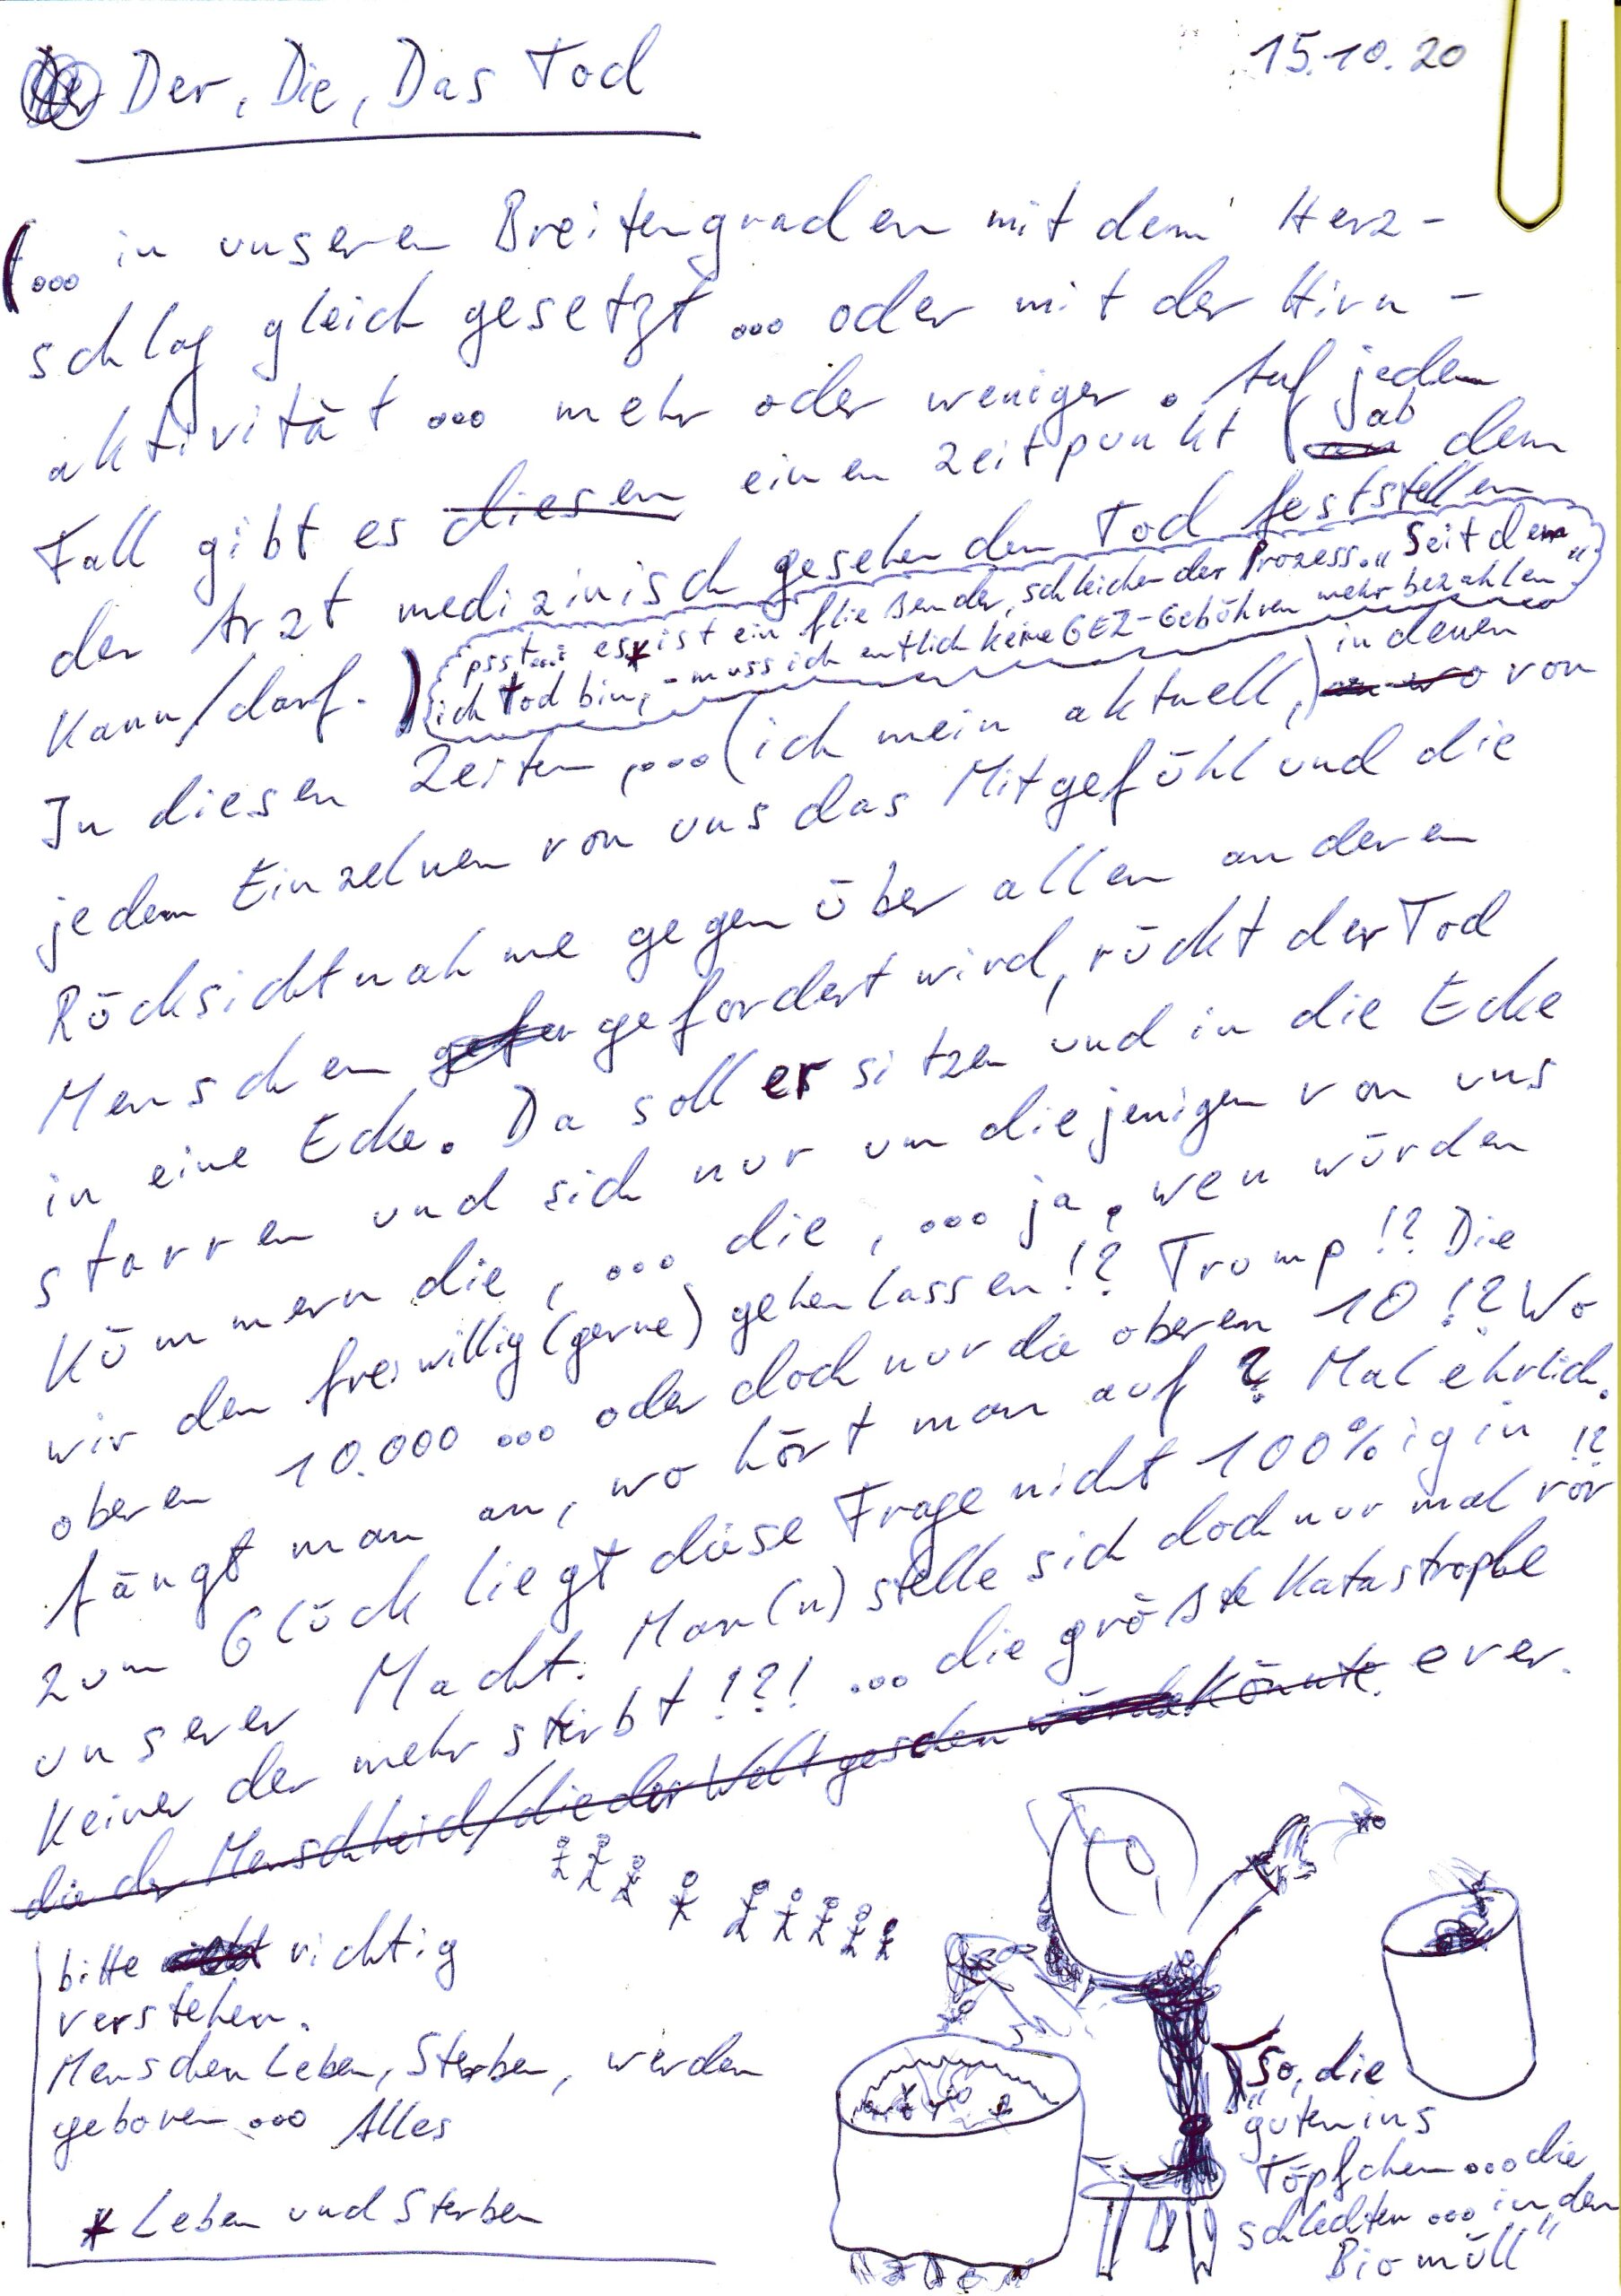 Der, Die, Das Tod
15.10.20
(... in unseren Breitengraden mit dem Herz-
schlag gleich gesetzt ... oder mit der Hirn-
aktivität ... mehr oder weniger. Auf jeden
Fall gibt es diesen einen Zeitpunkt (ab dem
der Arzt medizinisch gesehen den Tod feststellen
kann/darf.)
psst... es* ist ein fließender, schleichender Prozess. "Seit dem
ich tod bin, - muss ich entlich keine GEZ-Gebühren mehr bezahlen"
In diesen Zeiten, ... (ich mein aktuell,) in denen von
jedem Einzelnen von uns das Mitgefühl und die
Rücksichtnahme gegenüber allen anderen
Menschen gefordert wird, rückt der Tod
in eine Ecke. Da soll er sitzen und in die Ecke
starren und sich nur um diejenigen von uns
kümmern die, ... die, ... ja, wen würden
wir den freiwillig (gerne) gehen lassen!? Trump!? Die
oberen 10.000 ... oder doch nur die oberen 10!? Wo
fängt man an, wo hört man auf? Mal ehrlich.
zum Glück liegt diese Frage nicht 100%ig in
unserer Macht. Man(n) stelle sich doch nur mal vor !?
Keiner der mehr stirbt!?! ... die größte Katastrophe
die der Menschheid/die der Welt geschen könnte. ever.
bitte richtig
verstehen.
Menschen Leben, Sterben, werden
geboren ... Alles
* Leben und Sterben
"So, die
guten ins
Töpfchen ... die
schlechten ... in den
Biomüll"